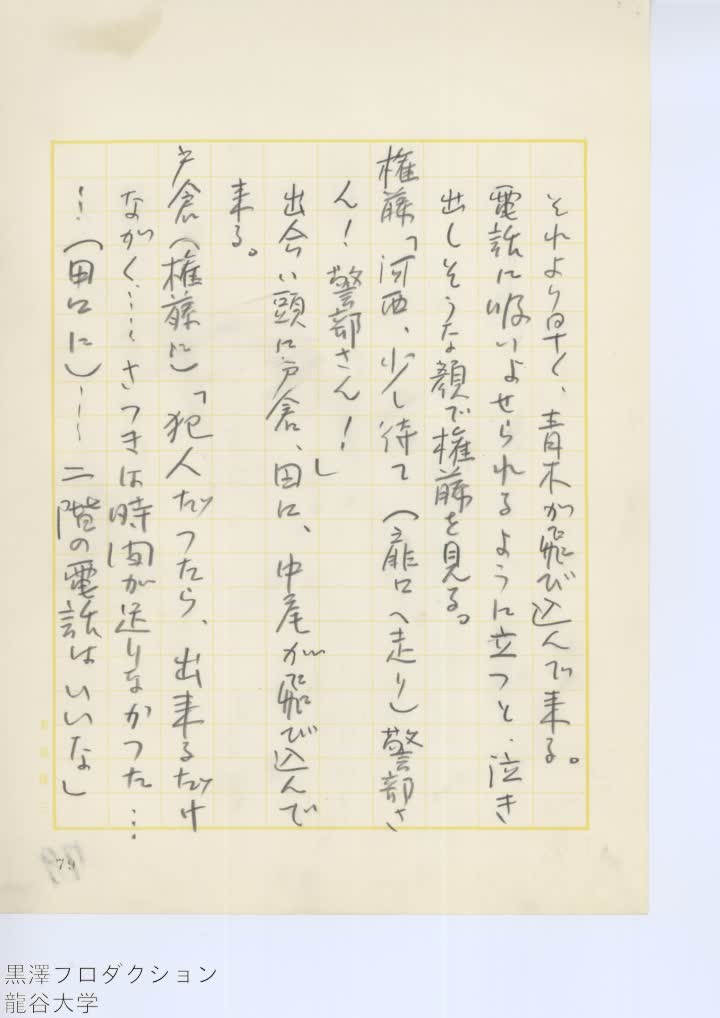 それより早く、青木が飛び込んで来る。
電話に吸いよせられるように立つと、泣き
出しそうな顔で権藤を見る。
権藤「河西、少し待て（扉口へ走り）警部さ
ん！警部さん！」
出合い頭に戸倉、田口、中尾が飛び込んで
来る。
戸倉（権藤に）「犯人だつたら、出来るだけ
ながく……さつきは時間が送りなかつた…
…（田口に）――二階の電話はいいな」
79
黒澤プロダクション
龍谷大学